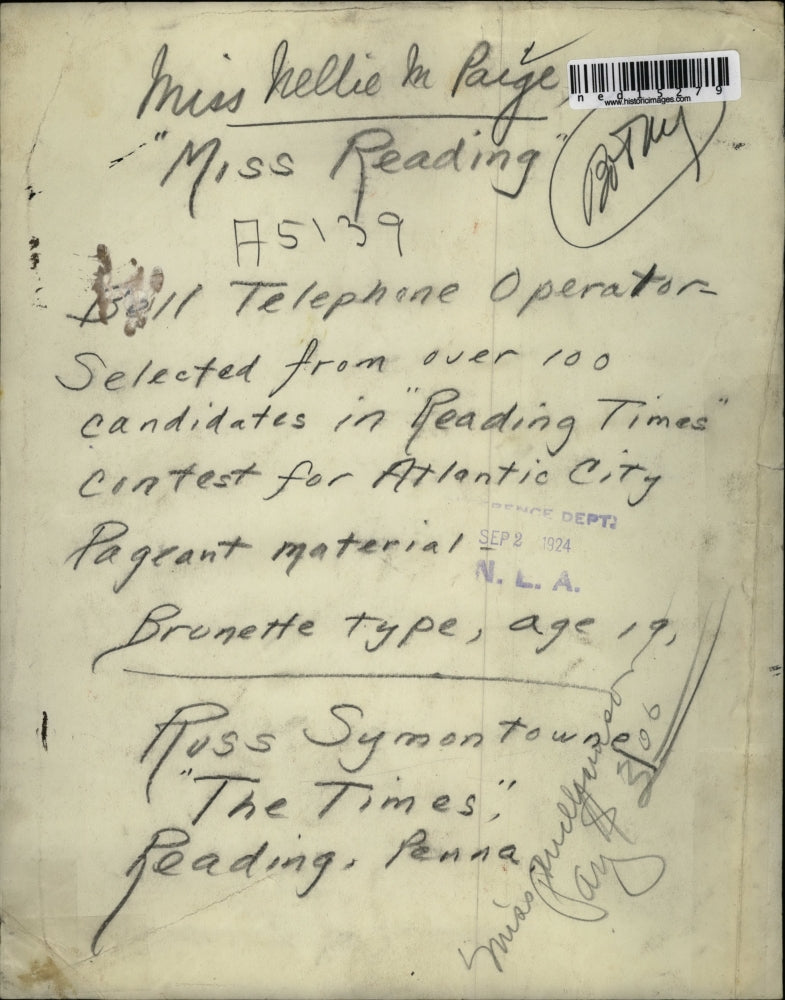 Miss Nellie M Paige,
ned15279
www.historicimages.com
"Miss Reading"
A5139
Bell Telephone Operator-
Selected from over 100
candidates in "Reading Times"
contest for Atlantic City
Pageant material -
RENCE DEPT.
SEP 2 1924
N. L. A.
Brunette type, age 19,
Russ Symontowne
"The Times",
Reading, Penna.
Miss